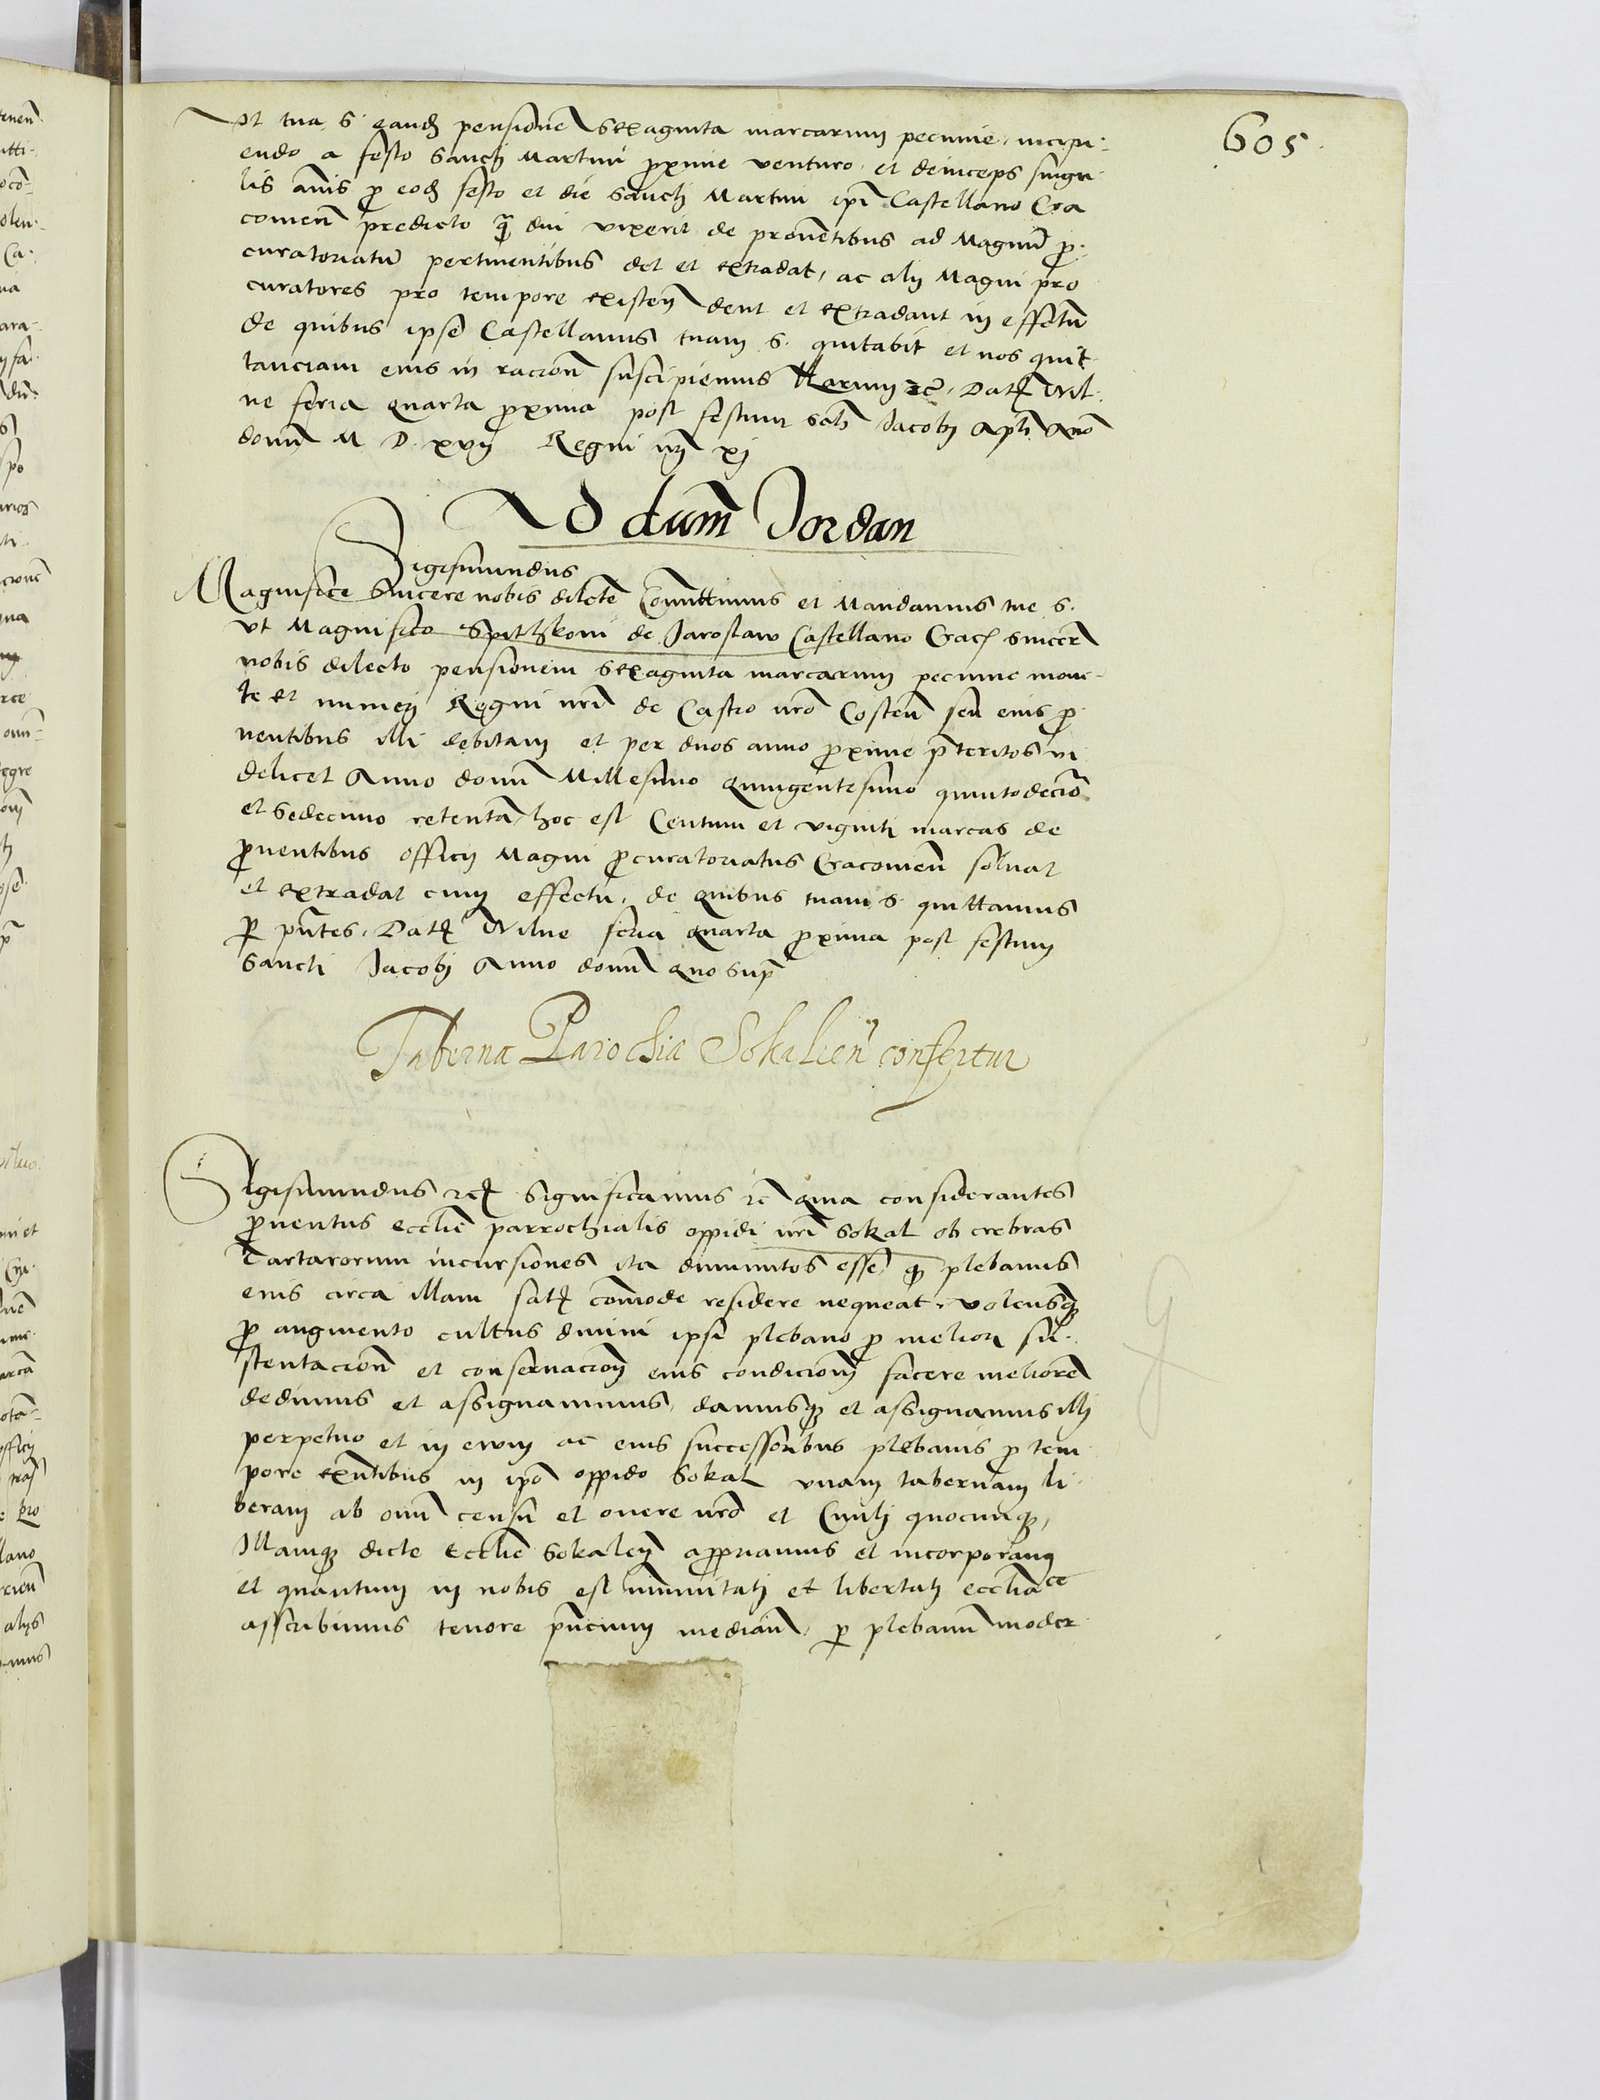 605
Ut tua S. eandē pensionē sexaginta marcarum pecunie, incipi-
endo a festo Sancti Martini proxime venturo et deinceps singu-
lis annis p eodē festo et die Sancti Martini ipi Castellano Cra
covieñ predicto q̃ diu vixerit de proventibus ad Magnū p-
curatoriatū pertinentibus det et extradat, ac alij Magni pro
curatores pro tempore existeñ dent et extradant in effctū
de quibus ipse Castellanus tuam S. quitabit et nos quit-
tanciam eius in racioñ suscipiemus Harum rc̃, Datꝭ Wil-
ne feria quarta proxima post festum Scti Jacobi Apli Anō
domī M D xvij Regni nri xj
Ad dum̃ Jordan
Sigismundus
Magnifice Sincere nobis dilcte Comittimus et Mandamus tue S.
Ut Magnifico Spithkoni de Jaroslaw Castellano Cracꝭ sincerē
nobis dilecto pensionem sexaginta marcarum pecunie mone-
te et numeri Regni nri de Castro nrō Costeñ seu eius p
ventibus illi debitam et per duos anno proxime pteritos vi
delicet Anno domī Millesimo quingentesimo quintodecīo
et sedecimo retentā, hoc est Centum et viginti marcas de
proventibus officij Magni procuratoriatus Cracovieñ solvat
et extradat cum effectu, de quibus tuam S. quittamus
per pñtes, Datꝭ Wilne feria quarta proxima post festum
Sancti Jacobi Anno domī quo supᷓ
Taberna Parochiæ Sokalien̄ confertur
Sigismundus rcꝭ Significamus rc̃ quia considerantes
proventus ecclie parrochialis oppidi nri Sokal ob crebras
Tartarorum incursiones ita diminutos esse, qꝫ plebanus
eius circa illam satꝭ comode residere nequeat, volensqꝫ
p augmento cultus divini ipsi plebano p meliorj su-
stentacioñ et conservacioñ eius condicioñ facere meliorē
dedimus et assignavimus, damusqꝫ et assignamus illi
perpetuo et in evum ac eius successoribus plebanis p tem
pore exñtibus in ipō oppido Sokal unam tabernam li-
beram ab omī censu et onere nrō et Civili quocunqꝫ,
Illamqꝫ dicte Ecclie Sokaleñ appropriamus et incorporamꝰ
et quantum in nobis est imunitati et libertati ecclīacē
asscribimus tenore pñcium mediañ, per plebanū moder-